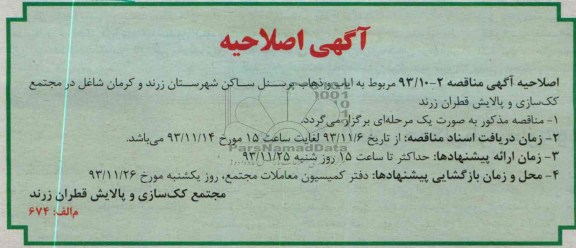 آگهی اصلاحیه
اصلاحیه آگهی مناقصه ۲-۹۳/۱۰ مربوط به ایاب و ذهاب پرسنل ساکن شهرستان زرند و کرمان شاغل در مجتمع
کک‌سازی و پالایش قطران زرند
۱- مناقصه مذکور به صورت یک مرحله‌ای برگزار می‌گردد.
۲- زمان دریافت اسناد مناقصه: از تاریخ ۹۳/۱۱/۶ لغایت ساعت ۱۵ مورخ ۹۳/۱۱/۱۴ می‌باشد.
ParsNamadData
۳- زمان ارائه پیشنهادها: حداکثر تا ساعت ۱۵ روز شنبه ۹۳/۱۱/۲۵
۴- محل و زمان بازگشایی پیشنهادها: دفتر کمیسیون معاملات مجتمع، روز یکشنبه مورخ ۹۳/۱۱/۲۶
مجتمع کک‌سازی و پالایش قطران زرند
م‌الف: ۶۷۴